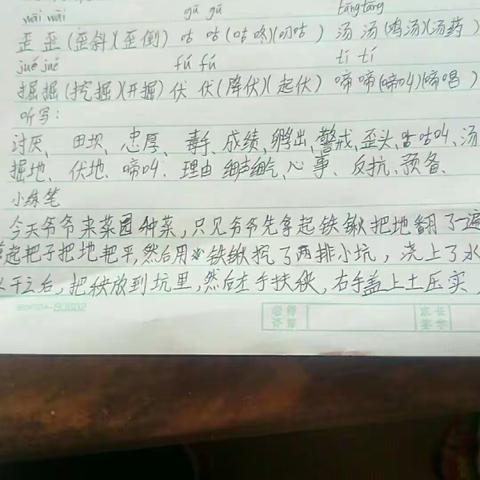 wāi wāi gū gū tāng tāng
歪 歪 (歪斜)(歪倒) 咕 咕 (咕咚)(叨咕) 汤 汤 (鸡汤)(汤药)
jué jué fú fú tí tí
掘 掘 (挖掘)(开掘) 伏 伏 (降伏)(起伏) 啼 啼 (啼叫)(啼唱)
听写:
讨厌、田坝、忠厚、毒手、成绩、孵出、警戒、歪头、咕咕叫、汤
掘地、伏地、啼叫、理由 细声细气、心事、反抗、预备、
小练笔
今天爷爷来菜园种菜,只见爷爷先拿起铁锹把地翻了一遍
起把子把地把平,然后用铁锹挖了两排小坑,浇上了水
干之后,把秧放到坑里,然后左手扶秧,右手盖上土压实,